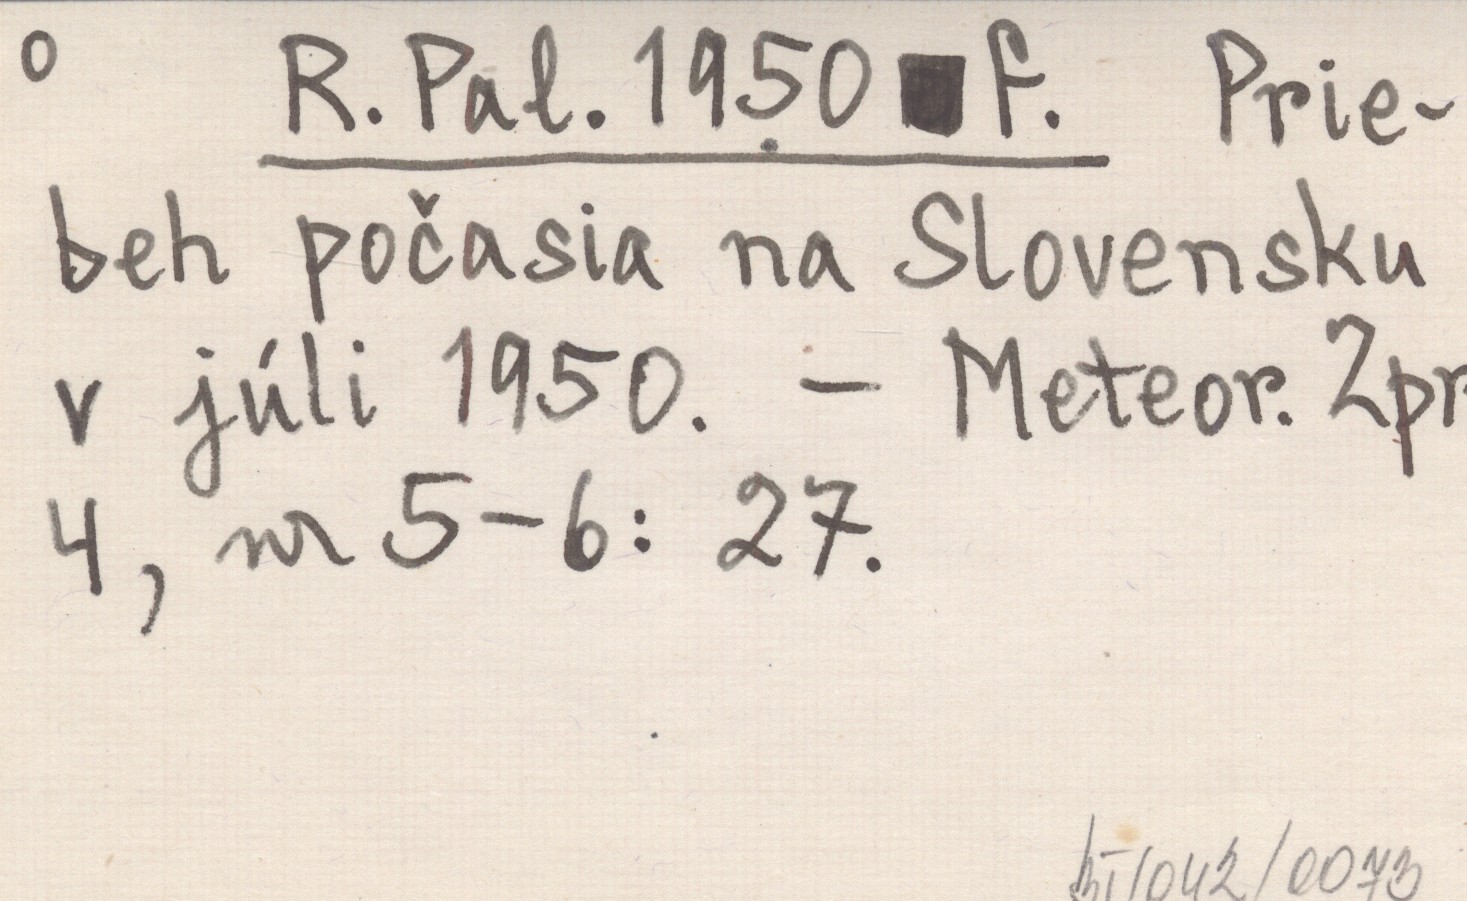 o R. Pal. 1950 f. Prie-
beh počasia na Slovensku
v júli 1950. – Meteor. Zpr
4, nr 5-6: 27.
/042/0073